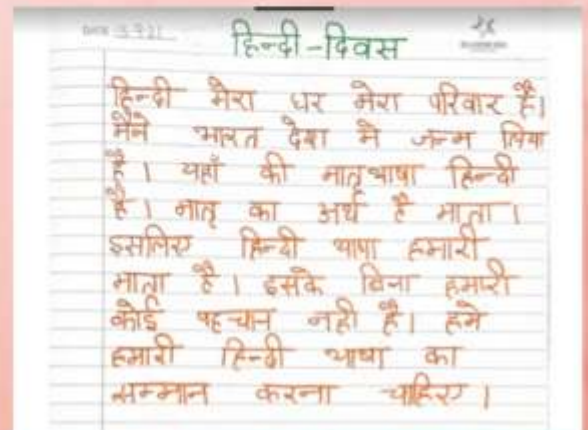 हिन्दी-दिवस
हिन्दी मेरा घर मेरा परिवार है।
मैने भारत देश मे जन्म लिया
है। यहाँ की मातृभाषा हिन्दी
है। मातृ का अर्थ है माता।
इसलिए हिन्दी भाषा हमारी
माता है। इसके बिना हमारी
कोई पहचान नही है। हमे
हमारी हिन्दी भाषा का
सम्मान करना चाहिए।